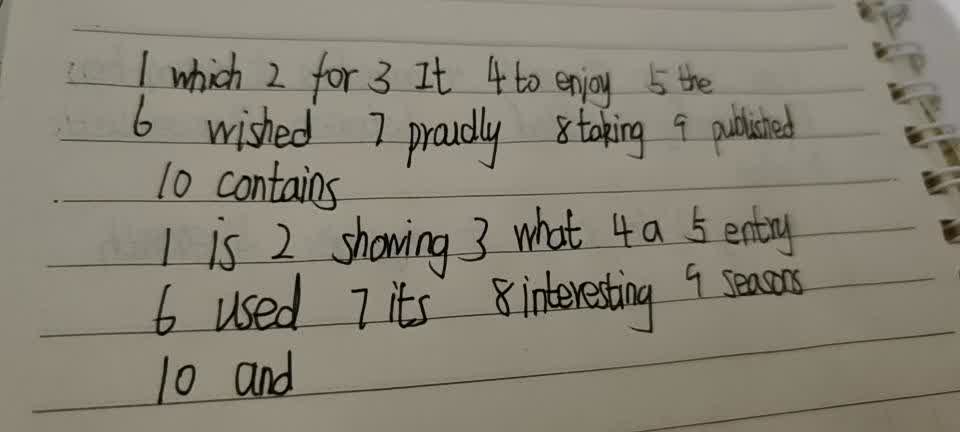 1 which 2 for 3 It 4 to enjoy 5 the
6 wished 7 proudly 8 taking 9 published
10 contains
1 is 2 showing 3 what 4 a 5 entry
6 used 7 its 8 interesting 9 seasons
10 and